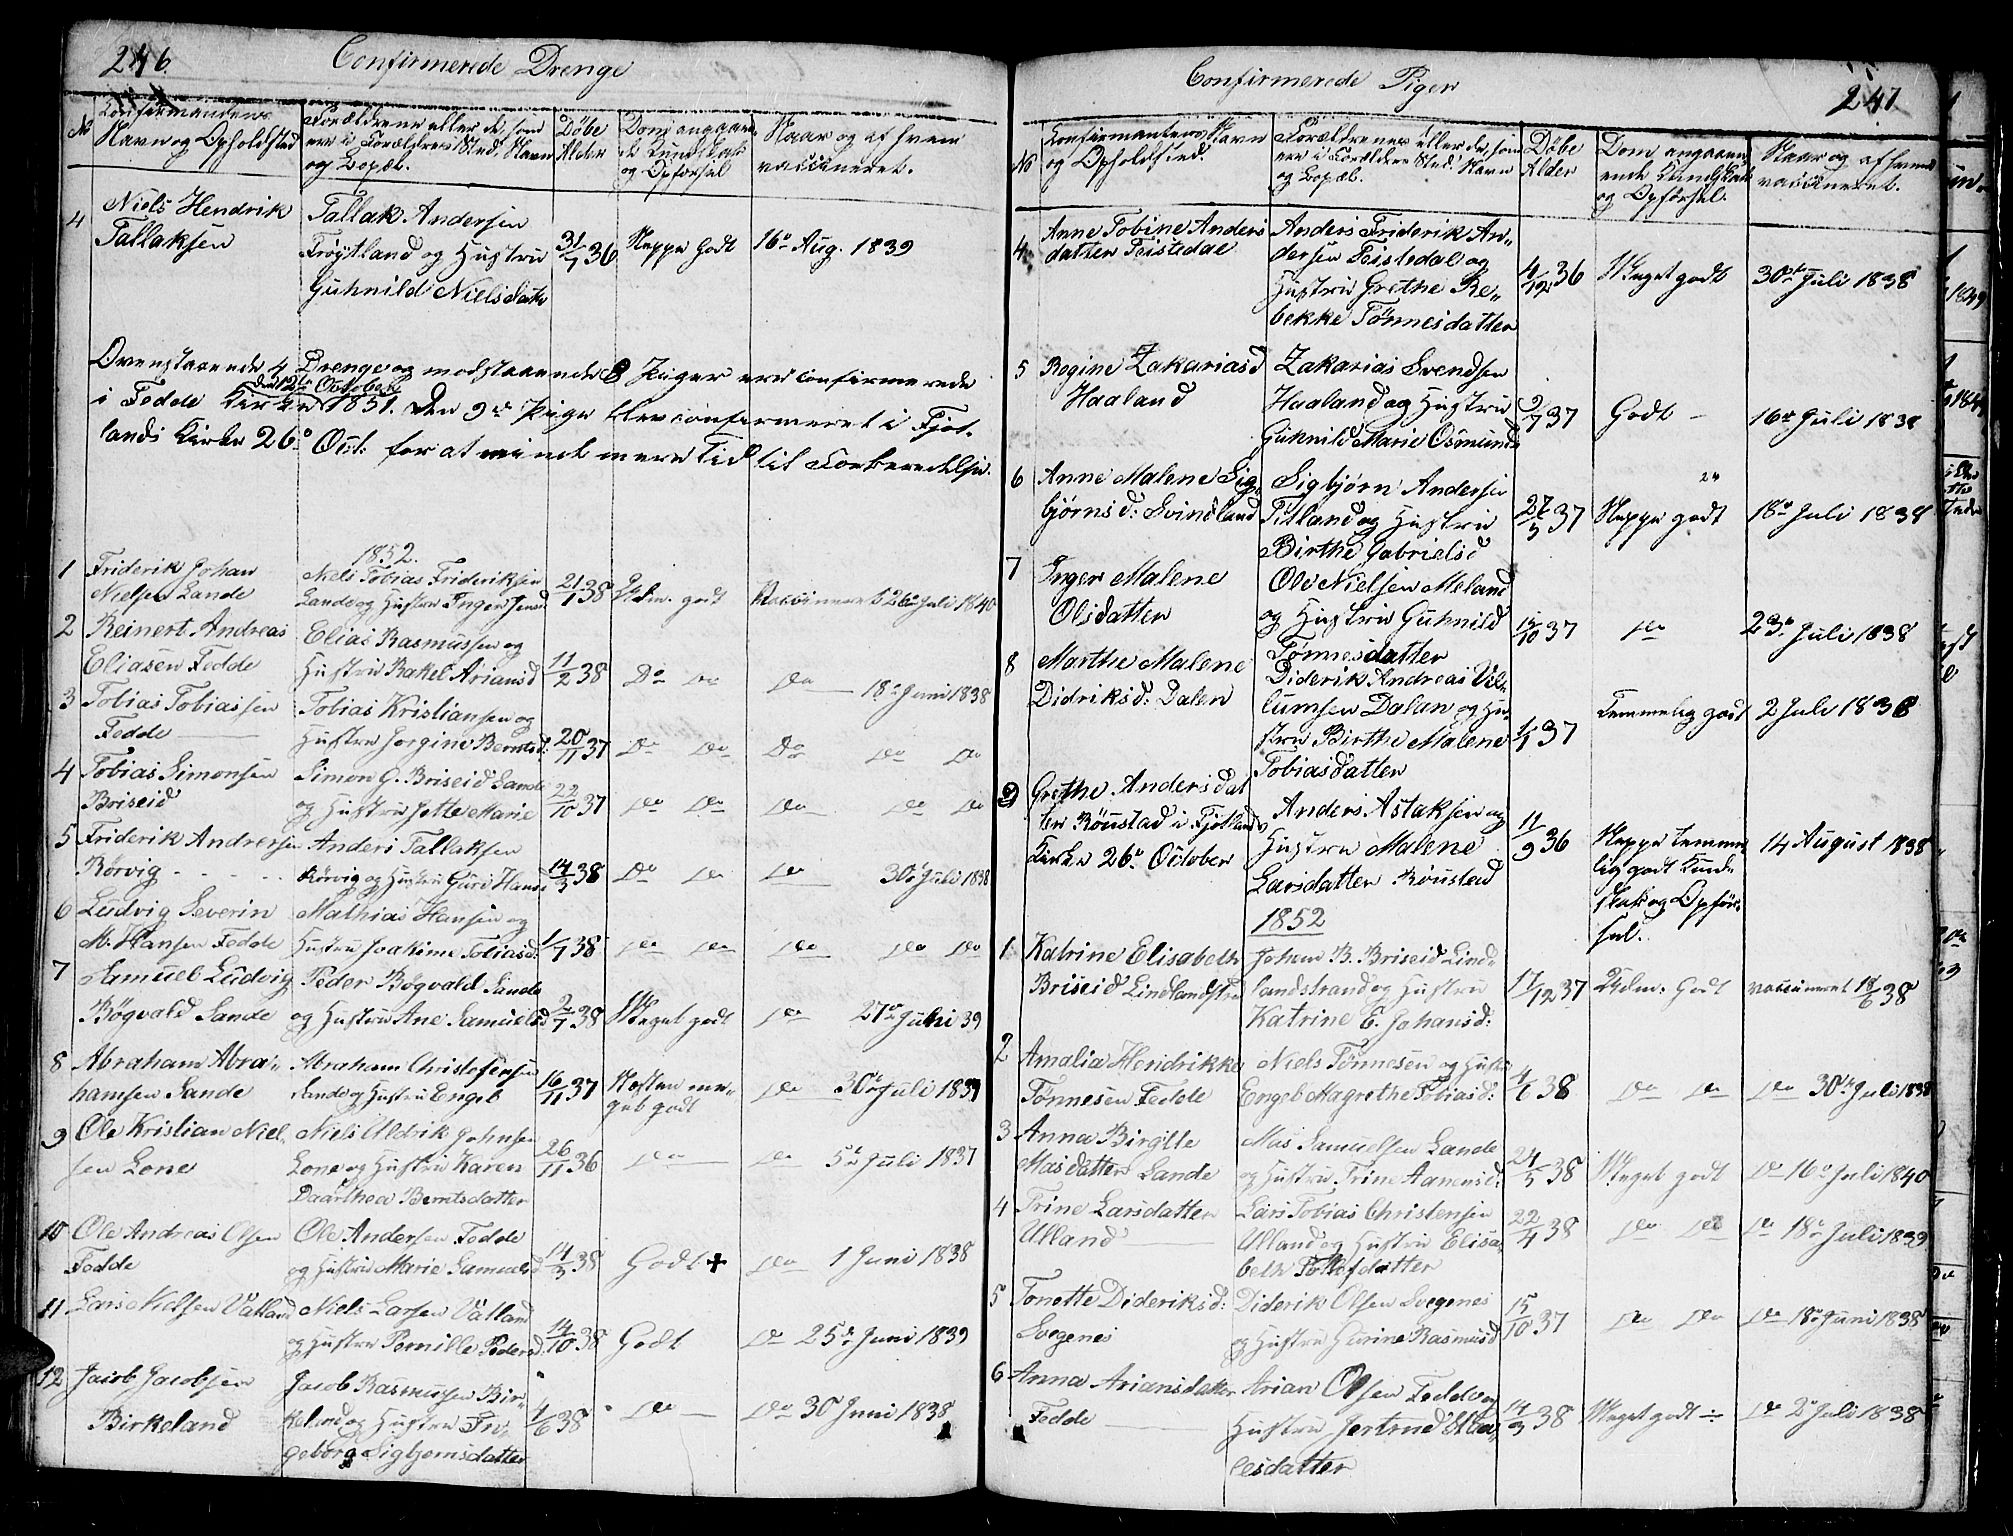 246.
Confirmerede Drenge
No
Konfirmandens
Navn og Opholdsted
Forældrene eller de, som
ere i Forældres Sted, Navn
og Bopæl.
Døbe
Alder
Dom angaaen-
de Kundskab
og Opførsel
Naar og af hvem
vaccineret.
4
Niels Hendrik
Tallaksen
Tallak Andersen
Frøytland og Hustru
Guhnild Nielsdatr
31/7 36
Neppe Godt
16de Aug. 1839
Ovenstaaende 4 Drenge og modstaaende 8 Piger ere confirmerede
den 12te October
i Fedde Kirke 1851. Den 9de Pige blev confirmeret i Fjot-
lands Kirke 26de Oct: for at vinde mere Tid til Forberedelse.
1852.
1
Friderik Johan
Nielsen Sande
Niels Tobias Frideriksen
Sande og Hustru Inger Jensd
21/1 38
Udm. godt
Vaccineret 26de Juli 1840
2
Reinert Andreas
Eliasen Fedde
Elias Rasmussen og
Hustru Rakel Ariansd
11/2 38
Do Do
Do 18de Juni 1838
3
Tobias Tobiassen
Fedde
Tobias Kristiansen og
Hustru Jorgine Berntsd:
20/11 37
Do Do
Do Do Do
4
Tobias Simonsen
Briseid
Simon G. Briseid Sande
og Hustru Jette Marie
22/10 37
Do Do
Do Do Do
5
Friderik Andersen
Rörvig
Anders Tallaksen
Rörvig og Hustru Guri Hansd
14/3 38
Do Do
Do 30te Juli 1838
6
Ludvig Severin
M. Hansen Fedde
Mathias Hansen og
Hustru Joakime Tobiasd:
1/7 38
Do Do
Do Do Do
7
Samuel Ludvig
Bögvald Sande
Peder Bögvald Sande
og Hustru Ane Samuelsd
2/7 38
Meget godt
Do 27de Juli 39
8
Abraham Abra-
hamsen Sande
Abraham Christofersen
Sande og Hustru Engel
16/11 37
Næsten me-
get godt
Do 30te Juli 1839
9
Ole Kristian Niel-
sen Lone
Niels Uldrik Johnsen
Lone og Hustru Karen
Daarthea Berntsdatter
26/11 36
Do
Do 5te Juli 1837
10
Ole Andreas Olsen
Fedde
Ole Andersen Fedde
og Hustru Marie Samuelsd
14/3 38
Godt +
Do 1 Juni 1838
11
Lars Nielsen Vatland
Niels Larsen Vatland
og Hustru Pernille Pedersd
14/10 38
Godt
Do 25de Juni 1839
12
Jacob Jacobsen
Birkeland
Jacob Rasmussen Bir-
keland og Hustru In-
geborg Sigbjørnsdatter
4/6 38
Do
Do 30 Juni 1838
Confirmerede Piger
247
No
Konfirmantens Navn
og Opholdsted.
Forældrenes eller de, som
ere i Forældres Sted, Navn
og Bopæl.
Døbe
Alder
Dom angaaen-
ende Kundskab
og Opførsel.
Naar og af hvem
vaccineret.
4
Anne Tobine Anders
datter Feistedal
Anders Friderik An-
dersen Feistedal og
Hustru Grethe Re-
bekke Tönnesdatter
4/12 36
Meget godt
30te Juli 1838
5
Regine Zakariasd
Haaland
Zakarias Svendsen
Haaland og Hustru
Guhnild Marie Osmunds
2/7 37
Godt
16de Juli 1838
6
Anne Malene Sig-
björnsd: Svindland
Sigbjørn Andersen
Fitland og Hustru
Birthe Gabrielsd
27/5 37
Neppe godt
18de Juli 1838
7
Inger Malene
Olsdatter
Ole Nielsen Meland
og Hustru Guhnild
Tønnesdatter
15/10 37
Do
23de Juli 1838
8
Marthe Malene
Didriksd: Dalen
Diderik Andreas Vil-
lumsen Dalan og Hu-
stru Birthe Malene
Tobiasdatter
1/1 37
Temmelig godt
2 Juli 1838
9
Grethe Andersdat
ter Röustad i Fjotlands
Kirke 26de October
Anders Aslaksen og
Hustru Malene
Larsdatter Röustad
11/9 36
Neppe temme-
lig godt Kund-
skab og Opför-
sel.
14 August 1838
1852
1
Katrine Elisabeth
Briseid Lindlandstra
Johan B. Briseid Lind-
landstrand og Hustru
Katrine E. Johansd:
17/12 37
Udm: Godt
vaccineret 18/6 38
2
Amalia Hendrikke
Tönnesen Fedde
Niels Tönnesen og Hustru
Engeb Magrethe Tobiasd:
4/6 38
Do Do
Do 30te Juli 1838
3
Anna Birgitte
Masdatter Sande
Mas Samuelsen Sande
og Hustru Trine Aanensd:
24/5 38
Meget godt
Do 16de Juli 1840
4
Trine Larsdatter
Ulland
Lars Tobias Christensen
Ulland og Hustru Elisa-
beth Tollefsdatter
22/4 38
Do Do
Do 18de Juli 1839
5
Tonette Dideriksd:
Svegenes
Diderik Olsen Svegenes
og Hustru Gurine Rasmusd
15/10 37
Do Do
Do 18de Juni 1838
6
Anna Ariansdatter
Fedde
Arian Olsen Fedde og
Hustru Jertrud
esdatter
14/3 38
Meget godt
Do 2de Juli 1838